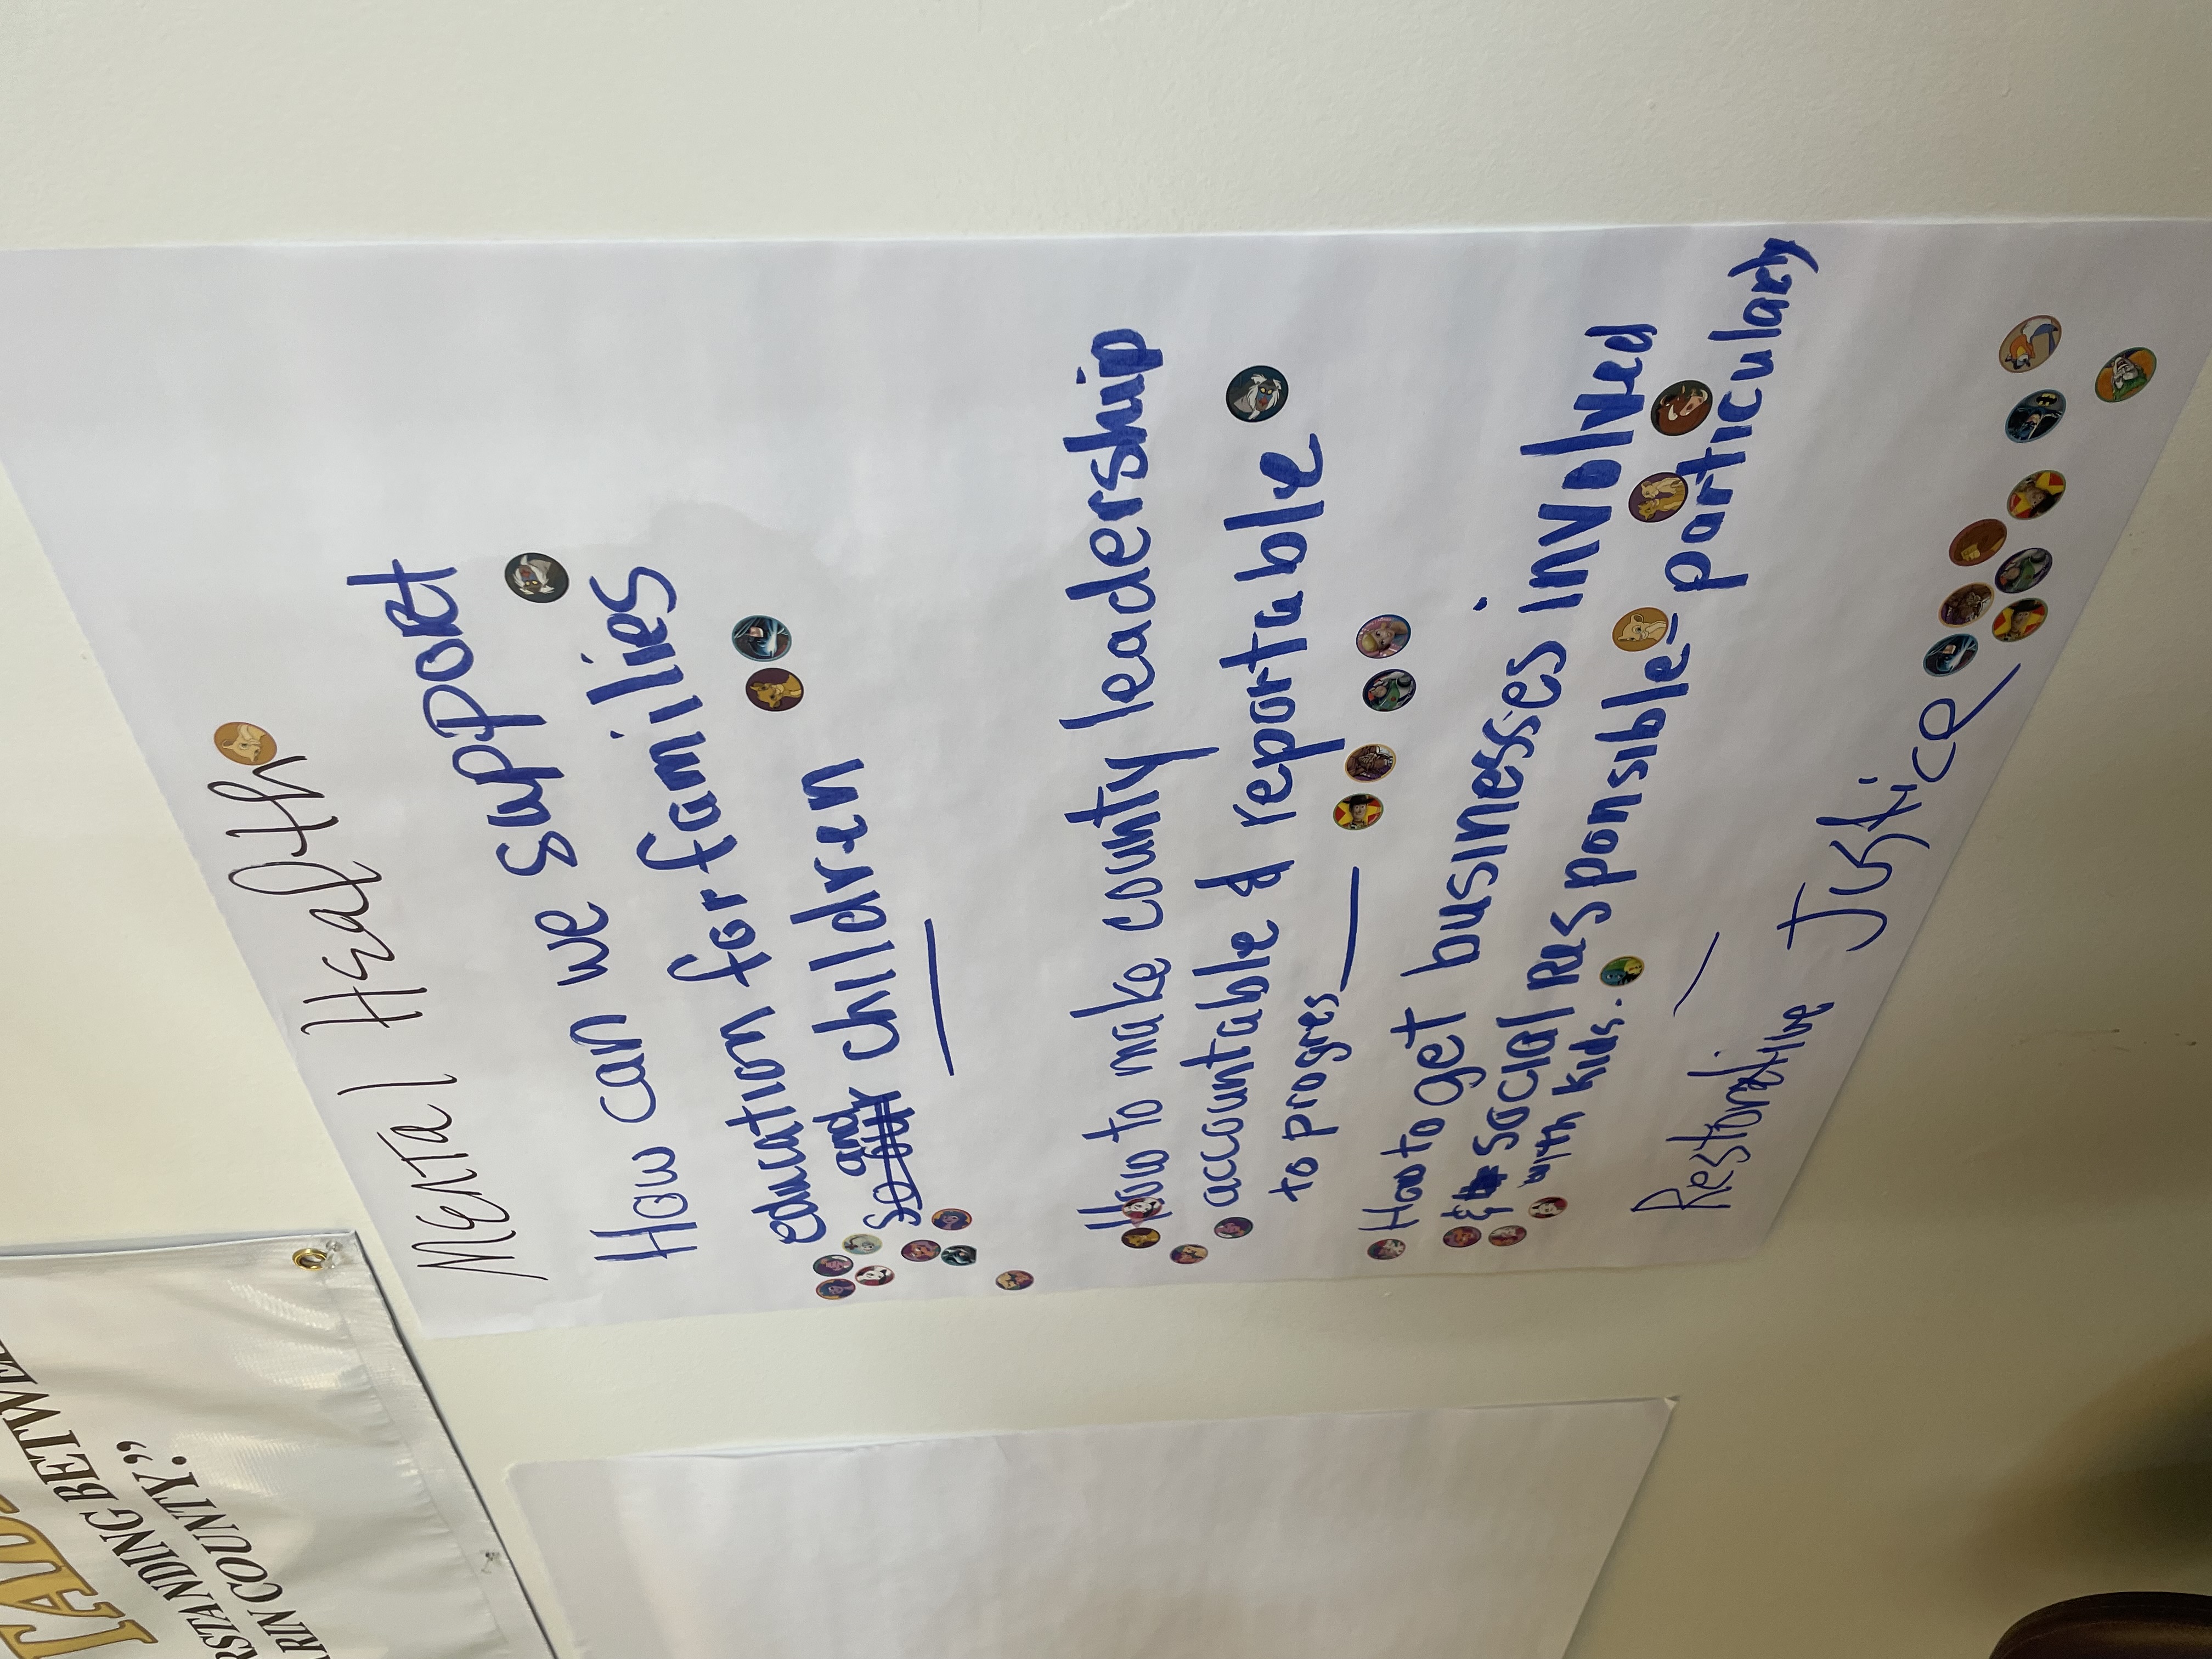 Mental Health
How can we support
education for families
and
se our children
How to make county leadership
accountable & reportable
to progres
How to get businesses involved
& social responsible - particulary
with kids.
Restorative Justice
RSTANDING BETWE
RIN COUNTY."